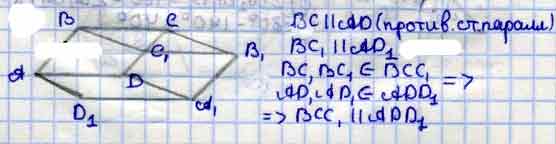 B C
A C₁ B₁
D
D₁ A₁
BC || AD (против. ст. паралл)
BC₁ || AD₁
BC, BC₁ ∈ BCC₁
AD, AD₁ ∈ ADD₁ =>
=> BCC₁ || ADD₁